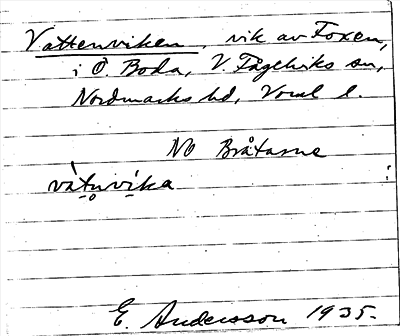 Vattenviken, vik av Foxen,
i Ö. Boda, V. Fågelviks sn,
Nordmarks hd, Värml l.
NO Bråtarne
vàtn̥vika
E. Andersson 1935.